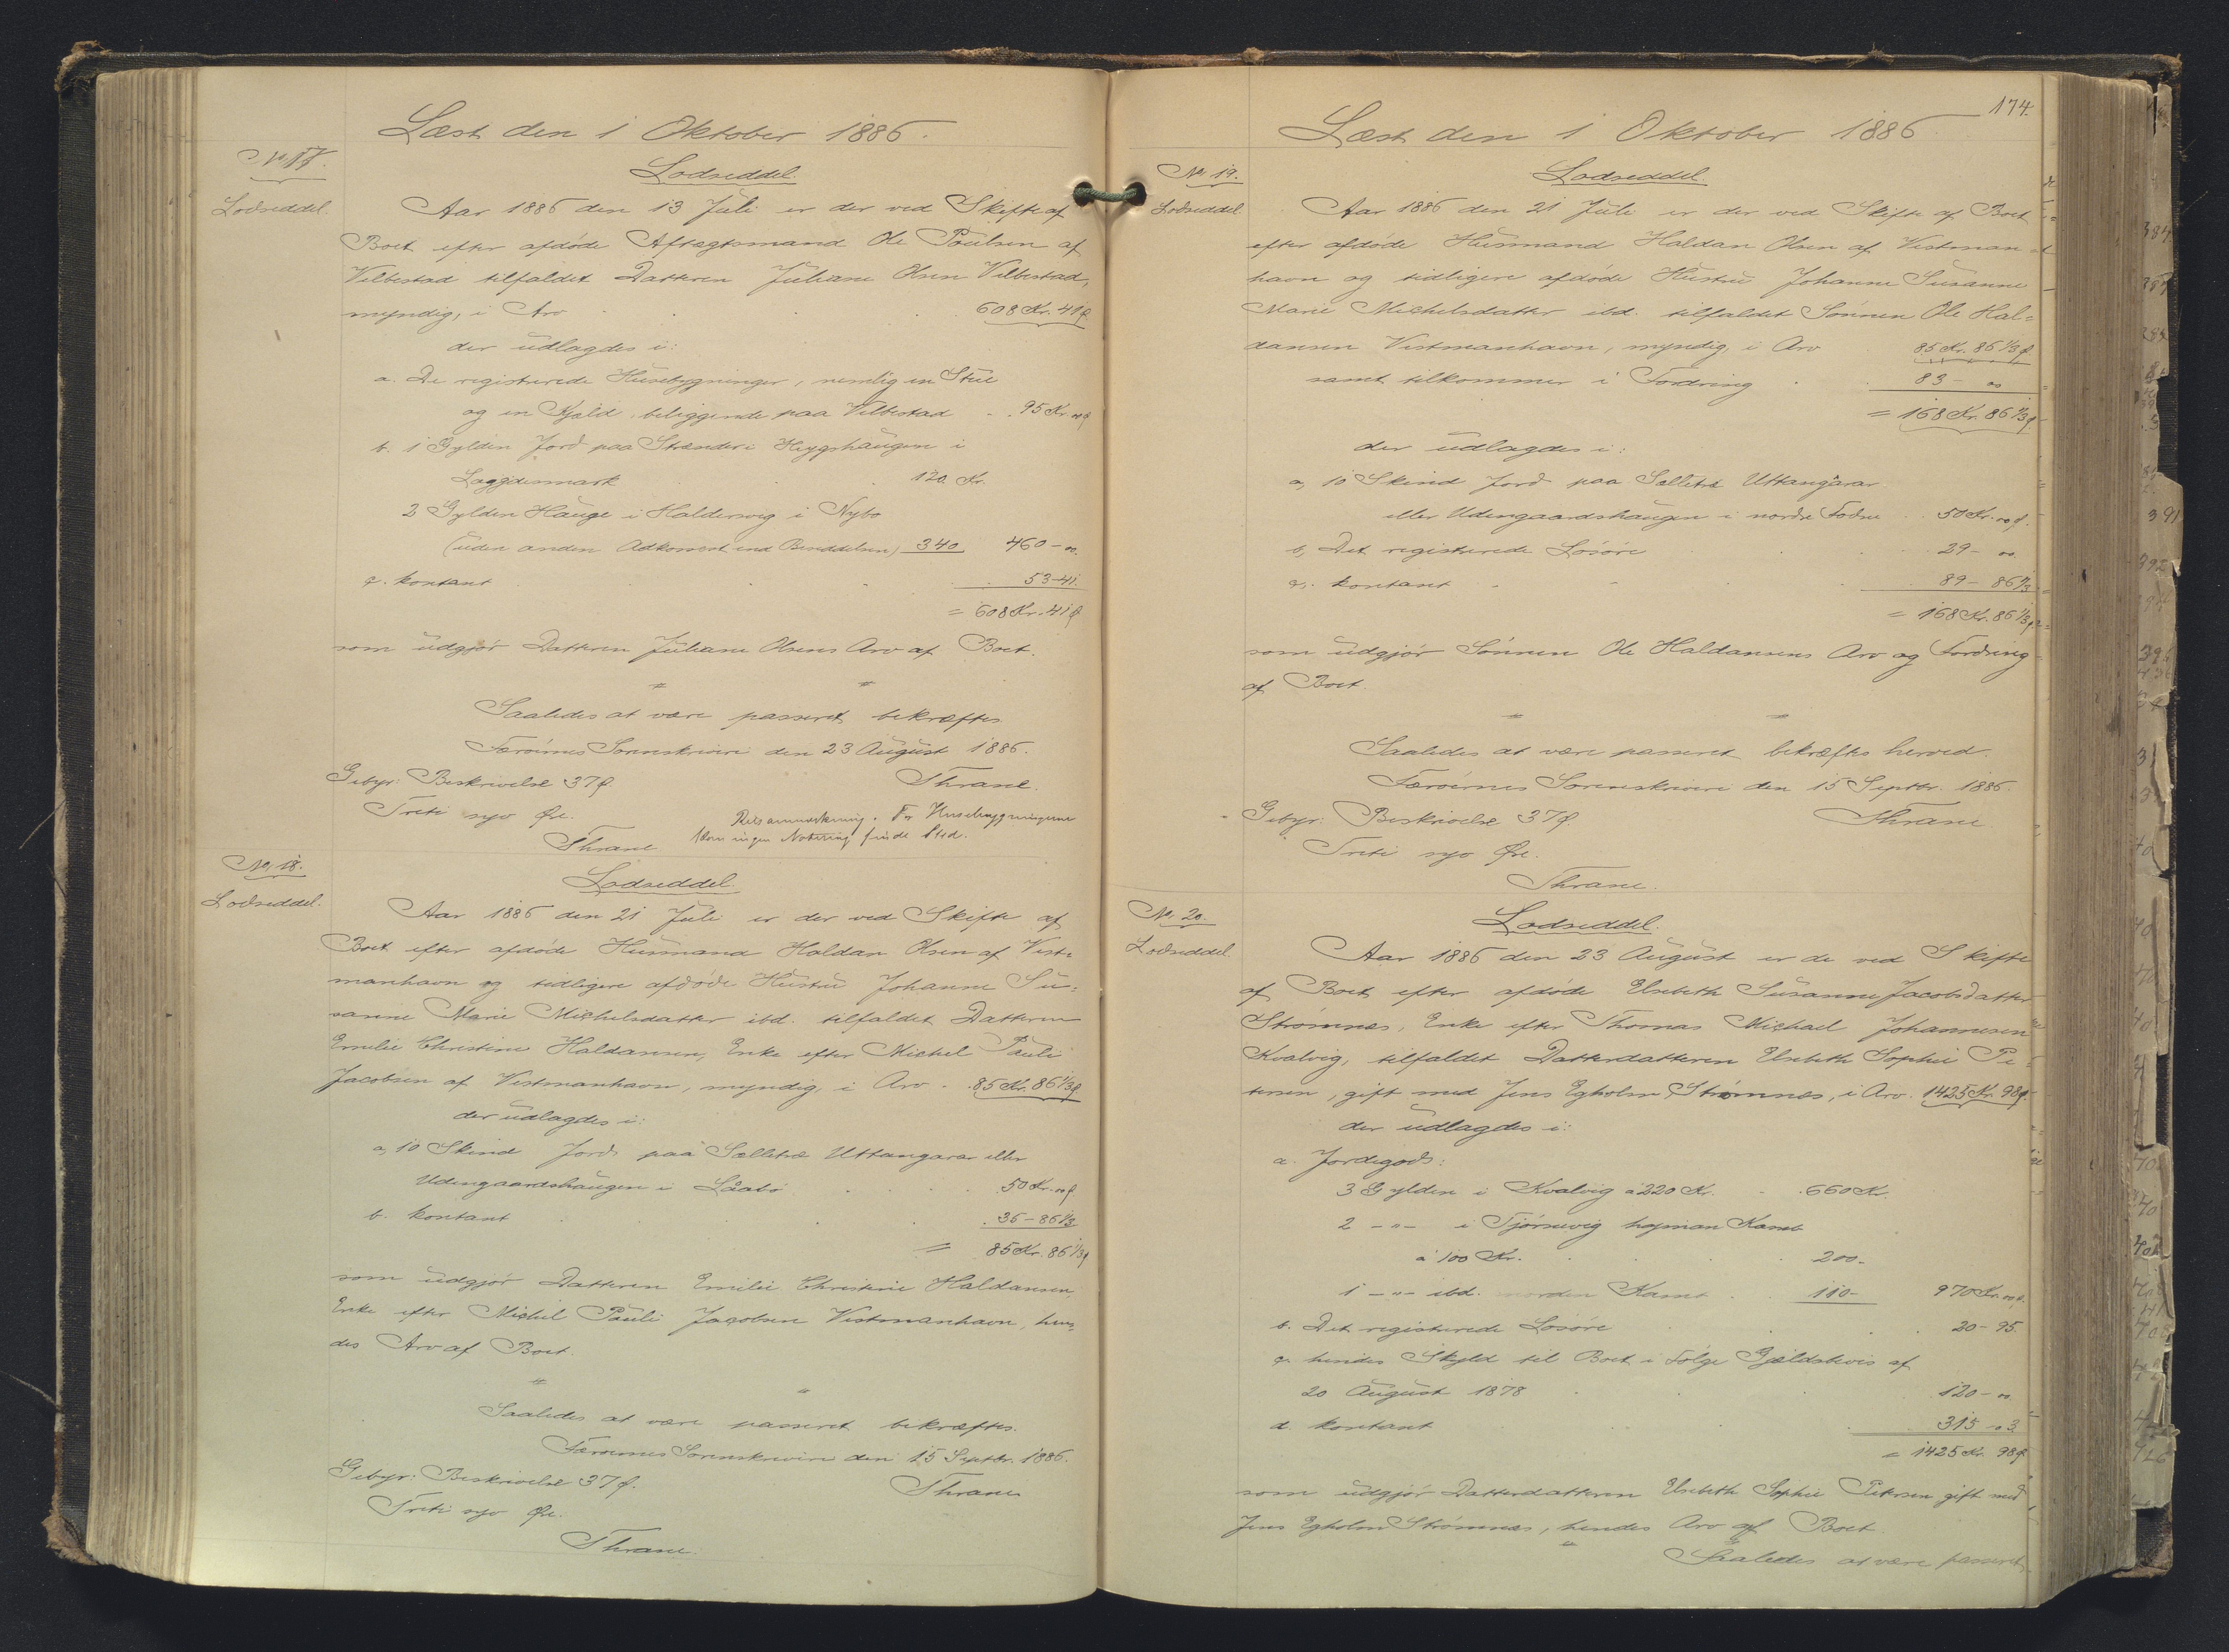 Læst den 1 Oktober 1886.
No 17.
Lodseddel.
Lodseddel.
Aar 1886 den 13 Juli er der ved Skifte af
Boet efter afdøde Aftægtsmand Ole Poulsen af
Velbestad tilfaldet Datteren Juliane Olsen Velbestad,
myndig, i Arv 608 Kr. 41 Ø
der udlagdes i:
a. De registrerede Husebygninger, nemlig en Stue
og en Kjeld, beliggende paa Velbestad 95 Kr. " Ø
b. 1 Gylden Jord paa Strænder i Heygshaugen i
120 Kr.
2 Gylden Hauge i Haldersvig i Nybo
(uden anden Adkomst end Besiddelsen) 340 460 - "
c. kontant 53-41.
= 608 Kr. 41 Ø
som udgjør Datteren Juliane Olsens Arv af Boet.
" "
Saaledes at være passeret bekræftes
Færøernes Sorenskriveri den 23 August 1886.
Gebyr: Beskrivelse 37 Ø. Thrane.
Treti syv Øre.
Thrane
Retsanmærkning. For Husebygningerne
kan ingen Notering finde Sted.
No 18.
Lodseddel.
Lodseddel.
Aar 1886 den 21 Juli er der ved Skifte af
Boet efter afdøde Husmand Haldan Olsen af Vest-
manhavn og tidligere afdøde Hustru Johanne Su-
sanne Marie Michelsdatter ibd. tilfaldet Datteren
Emilie Christine Haldansen, Enke efter Michel Pauli
Jacobsen af Vestmanhavn, myndig, i Arv 85 Kr. 86 1/3 Ø
der udlagdes i:
a, 10 Skind Jord paa Sælletræ Uttangarar eller
Udengaardshaugen i Låabø 50 Kr. " Ø
b. kontant 35-86 1/3
= 85 Kr. 86 1/3 Ø
som udgjør Datteren Emilie Christine Haldansen,
Enke efter Michel Pauli Jacobsen Vestmanhavn, hen-
des Arv af Boet.
" "
Saaledes at være passeret bekræftes.
Færøernes Sorenskriveri den 15 Septbr. 1886.
Gebyr: Beskrivelse 37 Ø. Thrane
Treti syv Øre.
Thrane.
174.
Læst den 1 Oktober 1886
No 19.
Lodseddel
Lodseddel.
Aar 1886 den 21 Juli er der ved Skifte af Boet
efter afdøde Husmand Haldan Olsen af Vestman-
havn og tidligere afdøde Hustru Johanne Susanne
Marie Michelsdatter ibd. tilfaldet Sønnen Ole Hal-
dansen Vestmanhavn, myndig, i Arv 85 Kr. 86 1/3 Ø
samt tilkommer i Fordring 83 - "
= 168 Kr. 86 1/3 Ø
der udlagdes i:
a, 10 Skind Jord paa Sælletræ Uttangarar
eller Udengaardshaugen i nordre 50 Kr. " Ø.
b, Det registrerede Løsøre 29 - "
c, kontant 89 - 86 1/3
= 168 Kr. 86 1/3 Ø
som udgjør Sønnen Ole Haldansens Arv og Fordring
af Boet.
" "
Saaledes at være passeret bekræftes herved.
Færøernes Sorenskriveri den 15 Septbr. 1886.
Gebyr: Beskrivelse 37 Ø Thrane
Treti syv Øre.
Thrane.
No 20.
Lodseddel.
Lodseddel.
Aar 1886 den 23 August er de ved Skifte
af Boet efter afdøde Elsebeth Susanne Jacobsdatter
Strømnæs, Enke efter Thomas Michael Johannesen
Kvalvig, tilfaldet Datterdatteren Elsebeth Sophie Pe-
tersen, gift med Jens Egholm Strømnæs, i Arv. 1425 Kr. 98 Ø.
der udlagdes i:
a. Jordegods:
3 Gylden i Kvalvig a 220 Kr. 660 Kr.
2 -"- i Tjørnevig hejman Kamb
a 100 Kr. 200 -
1 -"- ibd. norden Kamb 110 - 970 Kr. " Ø.
b. Det registrerede Løsøre 20 - 95.
c. hendes Skyld til Boet i Følge Gjeldsbevis af
20 August 1878 120 - "
d. kontant 315 - " 3
= 1425 Kr. 98 Ø
som udgjør Datterdatteren Elsebeth Sophie Petersen gift med
Jens Egholm Strømnæs, hendes Arv af Boet.
"
Saaledes at være passeret